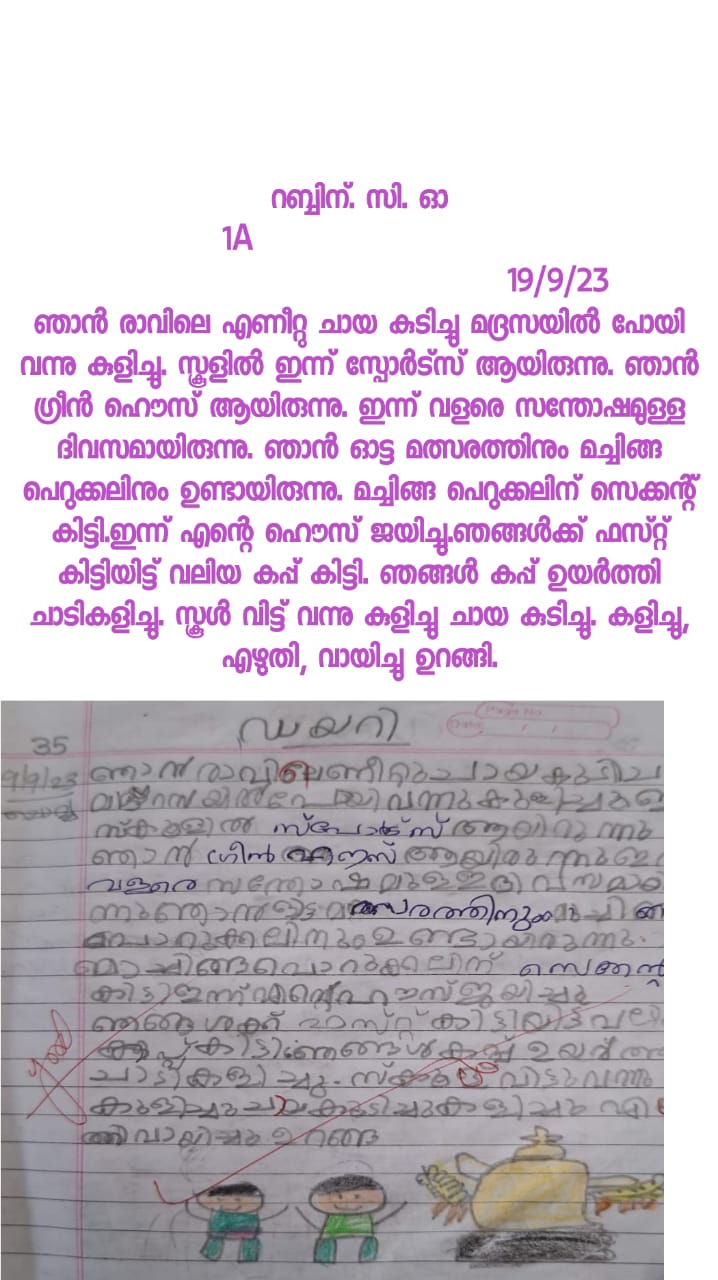 റബ്ബിന്. സി. ഓ
1A
19/9/23
ഞാൻ രാവിലെ എണീറ്റു ചായ കുടിച്ചു മദ്രസയിൽ പോയി
വന്നു കുളിച്ചു. സ്കൂളിൽ ഇന്ന് സ്പോർട്സ് ആയിരുന്നു. ഞാൻ
ഗ്രീൻ ഹൌസ് ആയിരുന്നു. ഇന്ന് വളരെ സന്തോഷമുള്ള
ദിവസമായിരുന്നു. ഞാൻ ഓട്ട മത്സരത്തിനും മച്ചിങ്ങ
പെറുക്കലിനും ഉണ്ടായിരുന്നു. മച്ചിങ്ങ പെറുക്കലിന് സെക്കന്റ്
കിട്ടി.ഇന്ന് എന്റെ ഹൌസ് ജയിച്ചു.ഞങ്ങൾക്ക് ഫസ്റ്റ്
കിട്ടിയിട്ട് വലിയ കപ്പ് കിട്ടി. ഞങ്ങൾ കപ്പ് ഉയർത്തി
ചാടികളിച്ചു. സ്കൂൾ വിട്ട് വന്നു കുളിച്ചു ചായ കുടിച്ചു. കളിച്ചു,
എഴുതി, വായിച്ചു ഉറങ്ങി.
ഡയറി
35
ഞാൻ രാവിലെണീറ്റു ചായ കുടിച
വന്നു കുളിച്ചു
സ്കൂളിൽ സ്പോർട്സ് ആയിരുന്നു
ഞാൻ ഗ്രീൻ ഹൗസ് ആയിരുന്നു
വളരെ സന്തോഷമുള്ള ദിവസമായ
ന്നു ഞാൻ ഓട്ട മത്സരത്തിനും മച്ചിങ്ങ
പൊറുക്കലിനും ഉണ്ടായിരുന്നു.
മാച്ചിങ്ങ പൊറുക്കലിന് സെക്കന്റ്
കിട്ടി ഇന്ന് എന്റെ ഹൗസ് ജയിച്ചു
ഞങ്ങൾക്ക് ഫസ്റ്റ് കിട്ടിയിട്ട് വലി
കപ്പ് കിട്ടി ഞങ്ങൾ കപ്പ് ഉയർത്ത
ചാടി കളിച്ചു. സ്കൂൾ വിട്ടു വന്നു
കുളിച്ചു ചായ കുടിച്ചു കളിച്ചു എഴ
തി വായിച്ചു ഉറങ്ങ
good